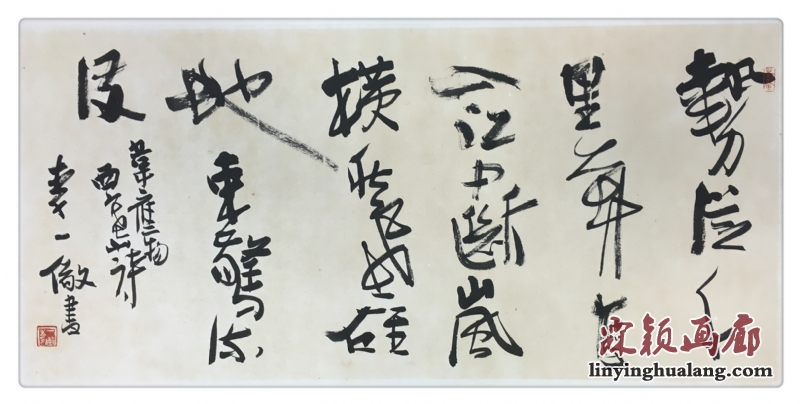 勢從千
里奔直
入江中斷嵐
橫秋塞雄
地束驚流
滿
韋應物
西塞山詩
李一書
霖颖画廊
linyinghualang.com